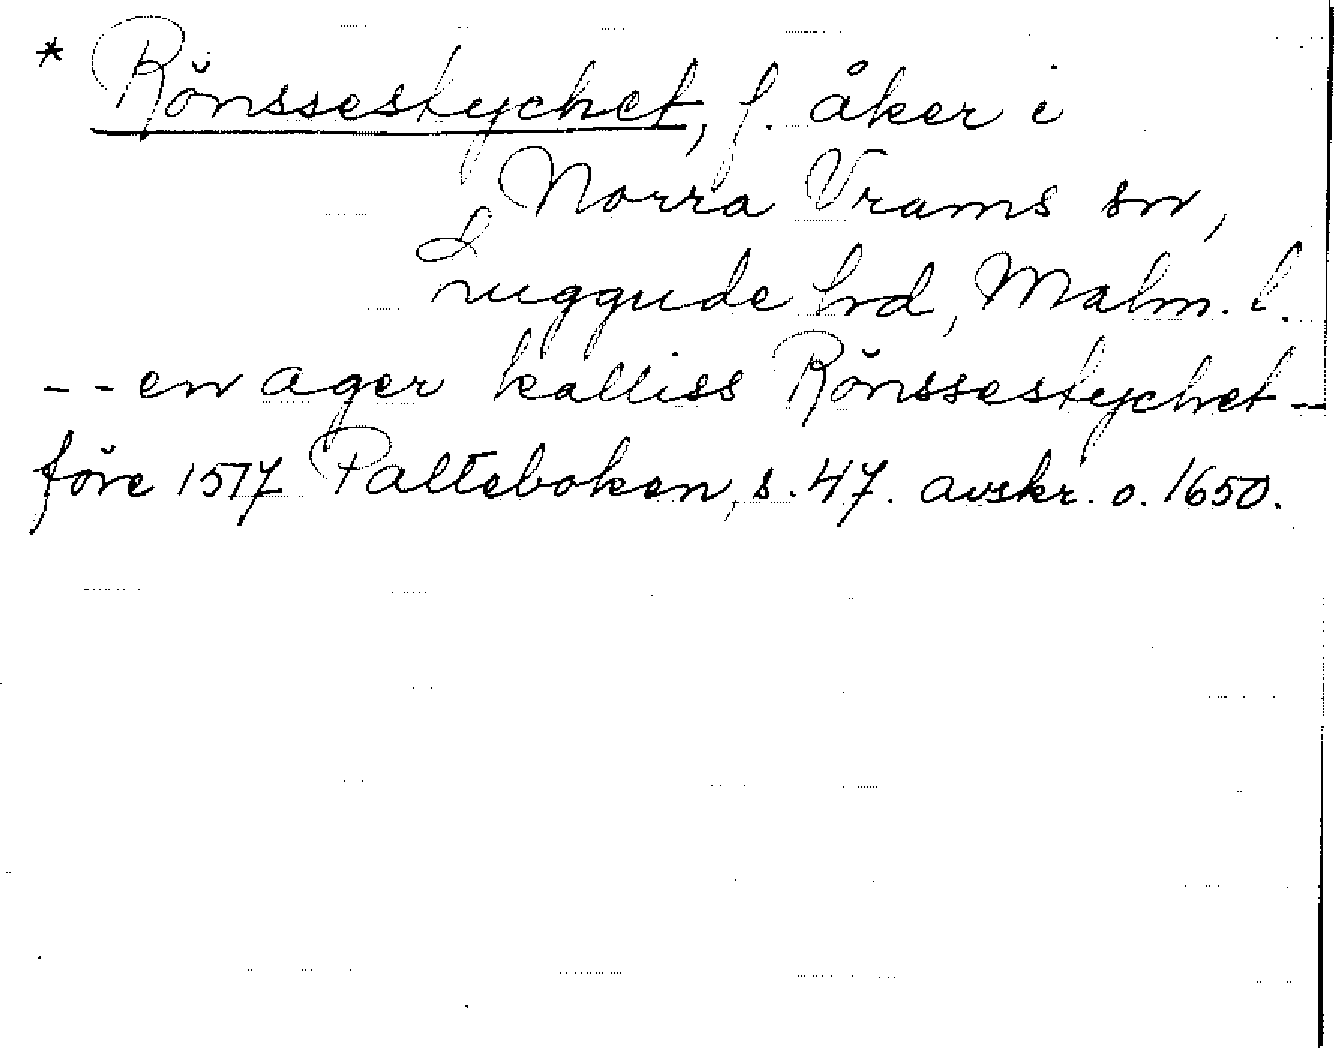 * Rönssestychet, f. åker i
Norra Vrams sn,
Luggude hd, Malm. l.
-- en ager kalliss Rönssestychet -
före 1517 Palteboken, s. 47. avskr. o. 1650.